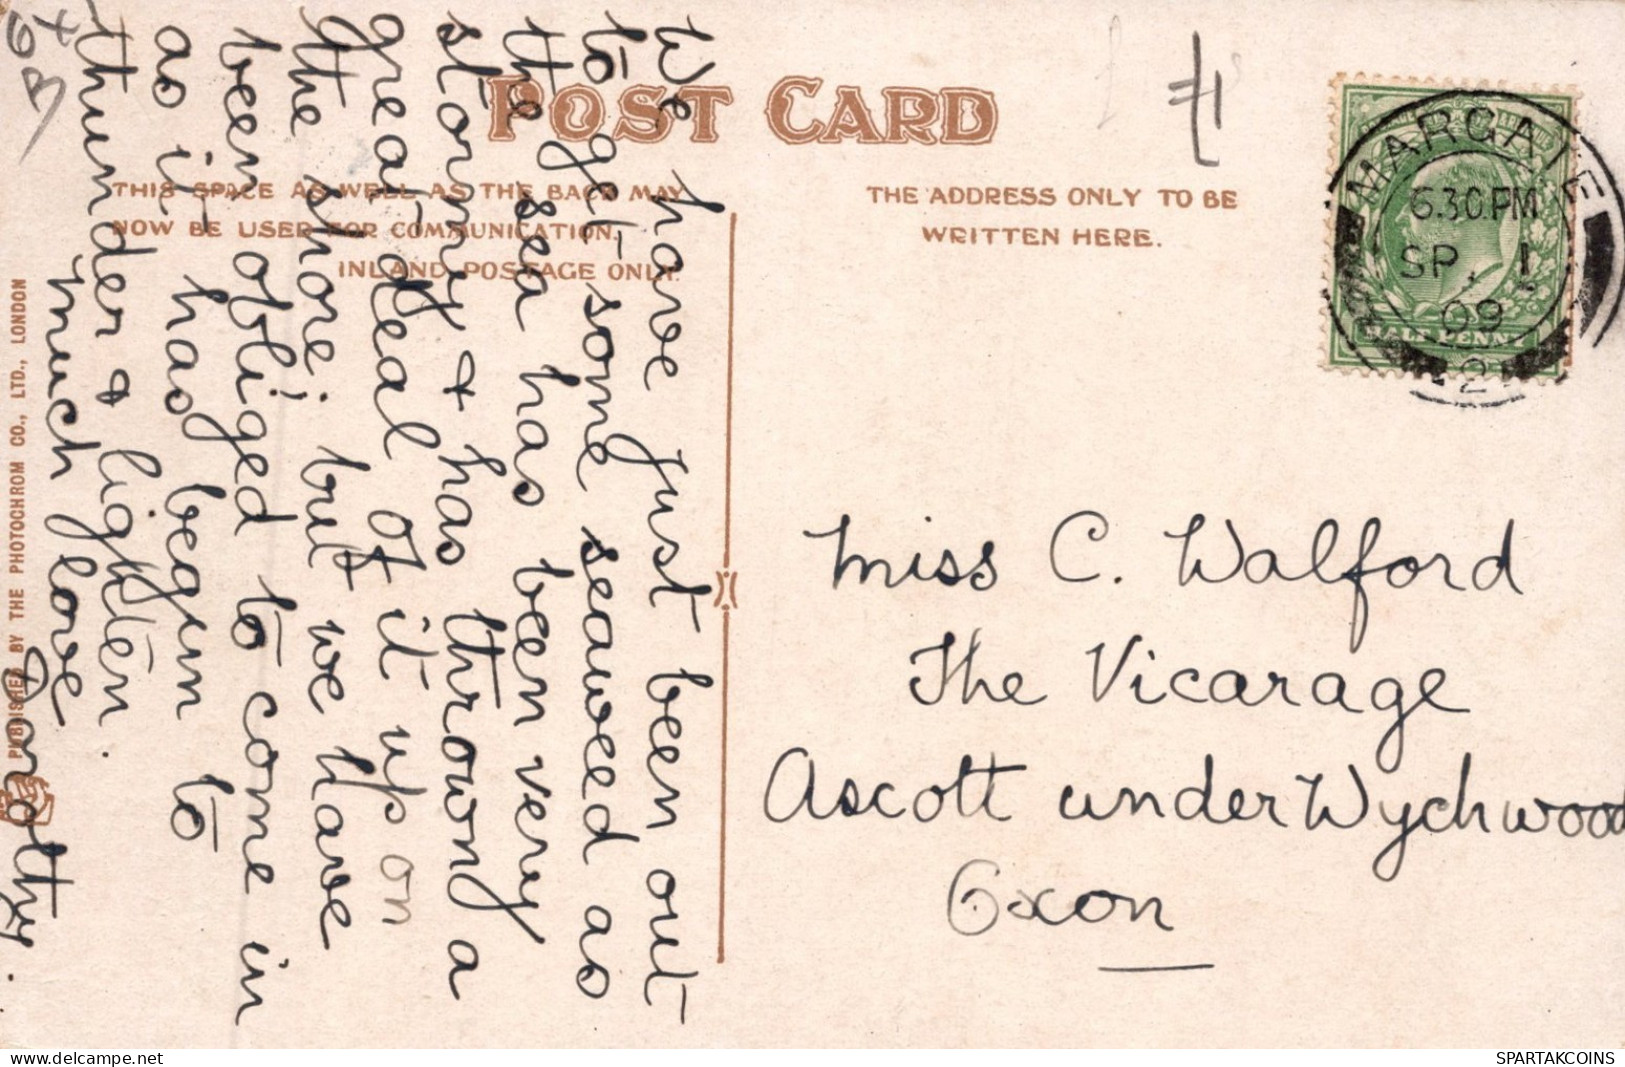 POST CARD
THIS SPACE AS WELL AS THE BACK MAY
NOW BE USED FOR COMMUNICATION.
INLAND POSTAGE ONLY.
THE ADDRESS ONLY TO BE
WRITTEN HERE.
MARGATE
6.30.PM
SP. 1
09
2
HALFPENNY
We have just been out
to get some seaweed as
the sea has been very
stormy & has thrown a
great deal of it up on
the shore; but we have
been obliged to come in
as it has begun to
thunder & lighten.
much love
Dorothy.
Miss C. Walford
The Vicarage
Ascott under Wychwood
Oxon
PUBLISHED BY THE PHOTOCHROM CO., LTD., LONDON
www.delcampe.net
SPARTAKCOINS